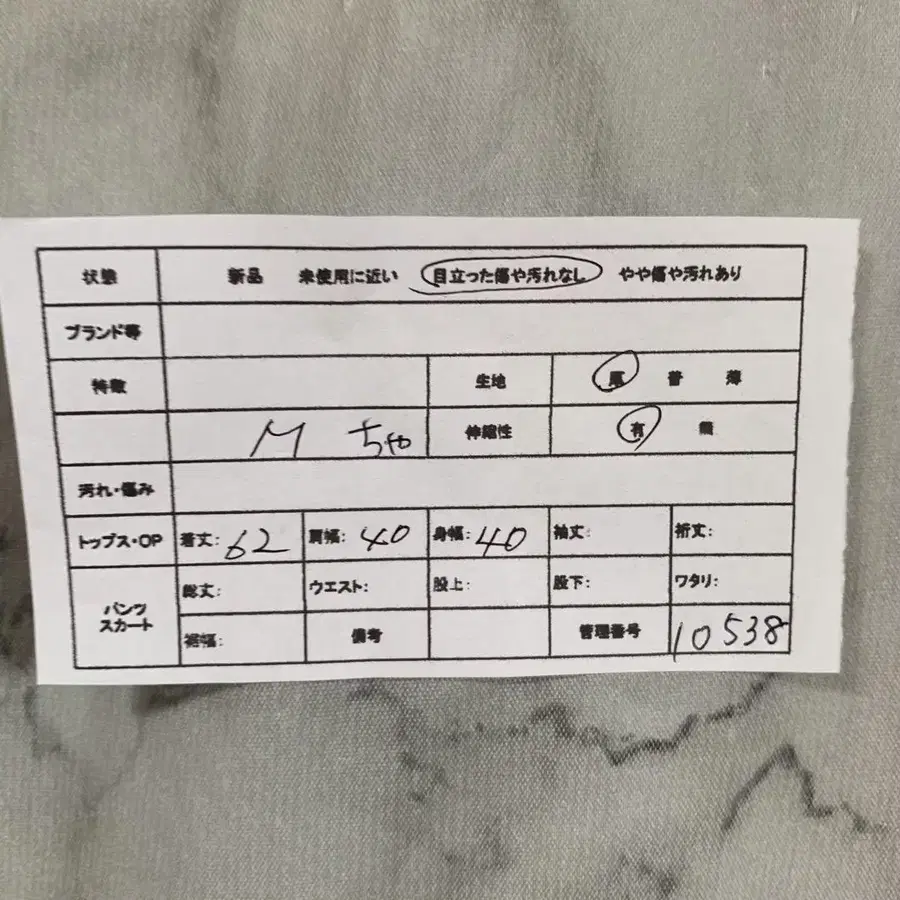 状態 新品 未使用に近い 目立った傷や汚れなし やや傷や汚れあり
ブランド等
特徴 生地 厚 普 薄
M ちゃ 伸縮性 有 無
汚れ・傷み
トップス・OP 着丈: 62 肩幅: 40 身幅: 40 袖丈: 裄丈:
パンツ スカート 総丈: ウエスト: 股上: 股下: ワタリ:
裾幅: 備考 管理番号 10538